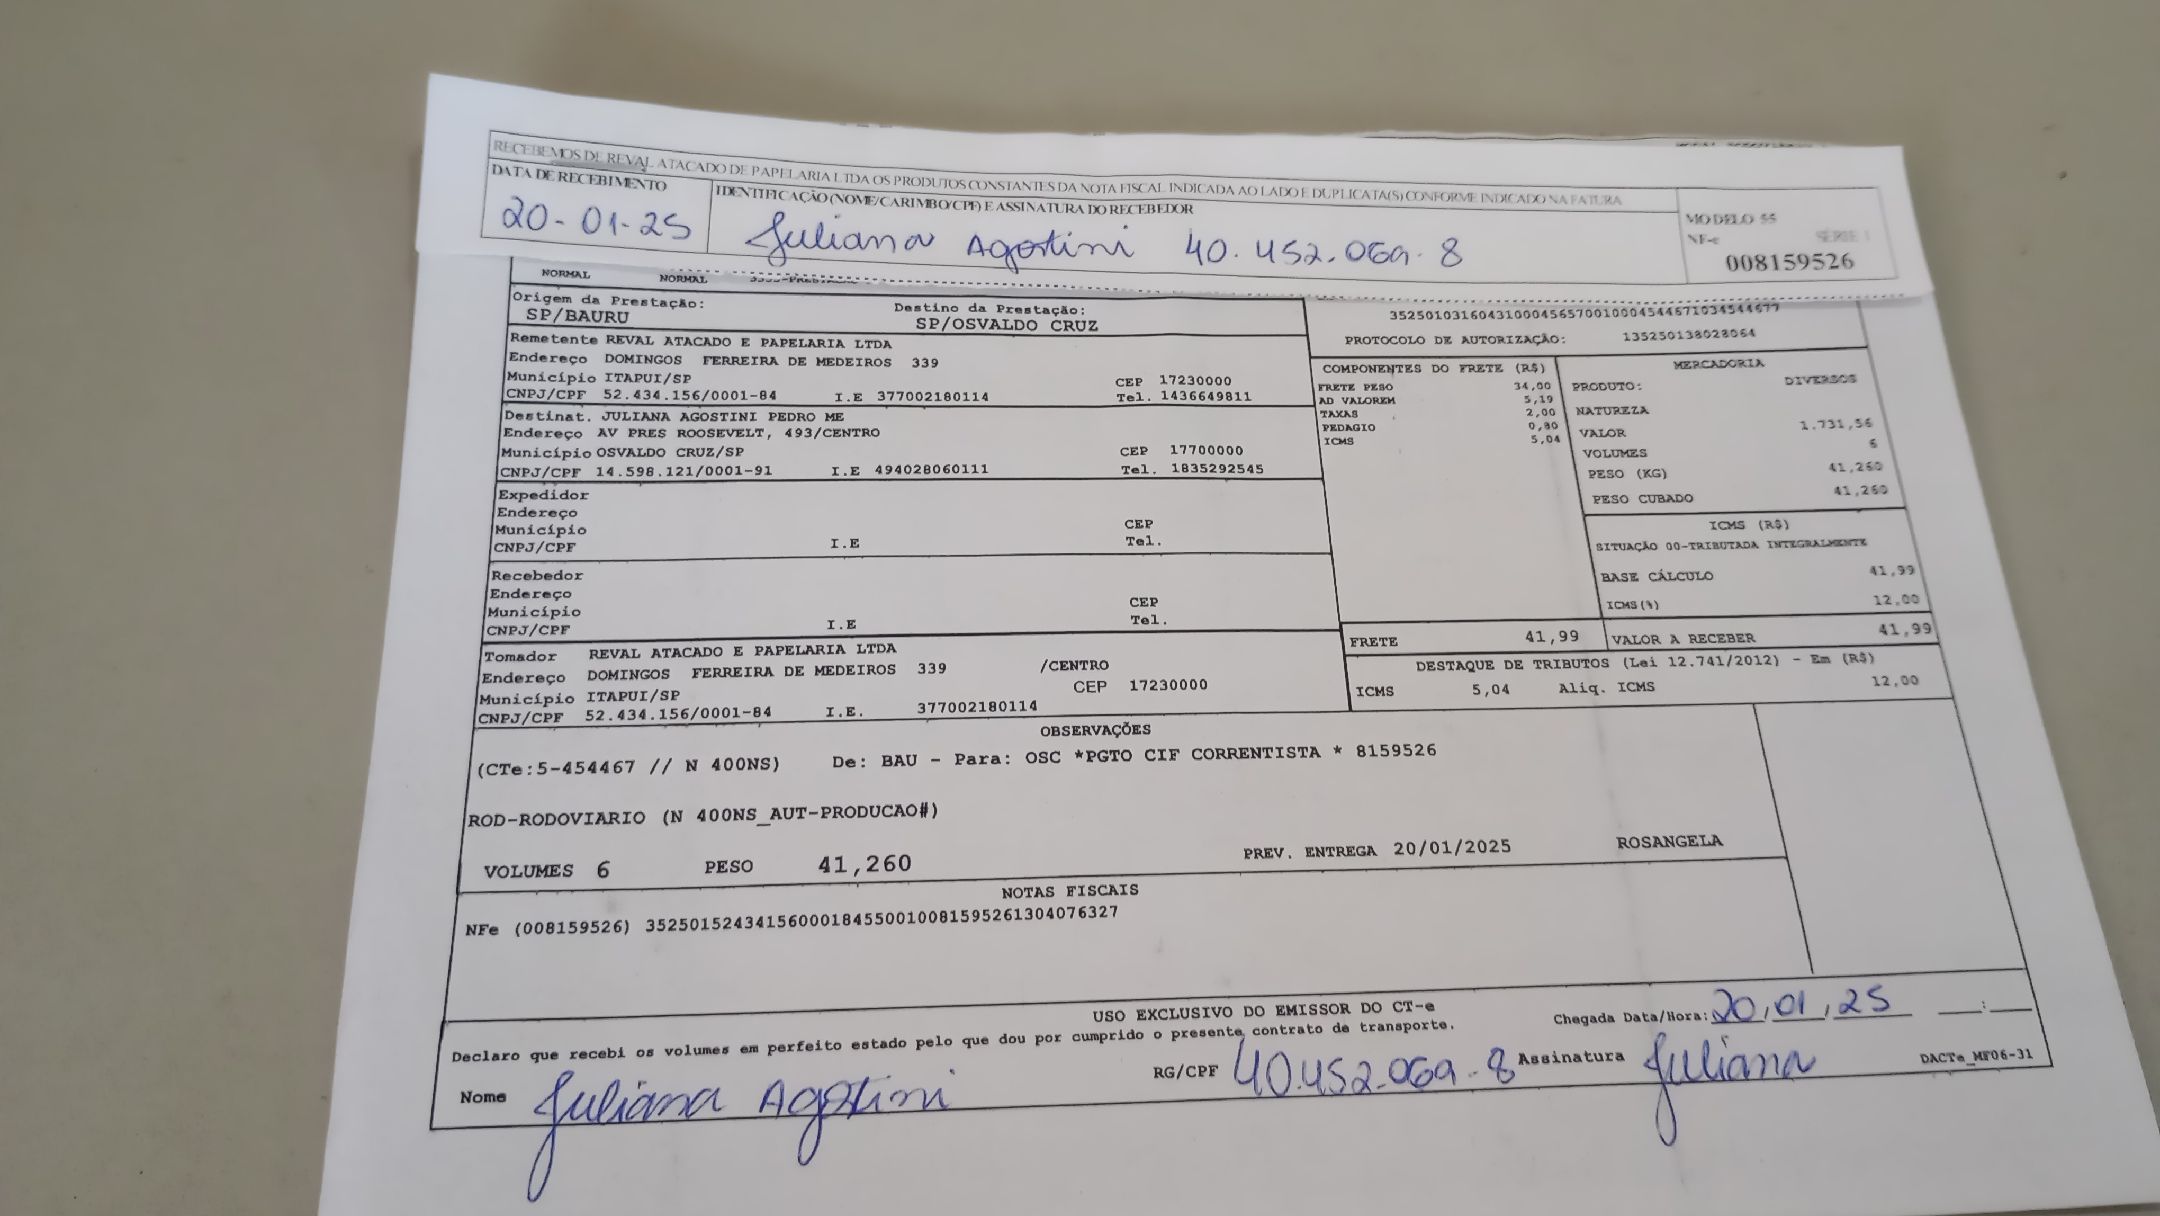 RECEBEMOS DE REVAL ATACADO DE PAPELARIA LTDA OS PRODUTOS CONSTANTES DA NOTA FISCAL INDICADA AO LADO E DUPLICATA(S) CONFORME INDICADO NA FATURA
DATA DE RECEBIMENTO IDENTIFICAÇÃO (NOME/CARIMBO/CPF) E ASSINATURA DO RECEBEDOR
MODELO 55
NF-e SÉRIE 1
20-01-25 Juliana Agostini 40.452.069-8 008159526
NORMAL NORMAL
Origem da Prestação: Destino da Prestação:
SP/BAURU SP/OSVALDO CRUZ
PROTOCOLO DE AUTORIZAÇÃO: 135250138028064
Remetente REVAL ATACADO E PAPELARIA LTDA
Endereço DOMINGOS FERREIRA DE MEDEIROS 339
Município ITAPUI/SP CEP 17230000
CNPJ/CPF 52.434.156/0001-84 I.E 377002180114 Tel. 1436649811
Destinat. JULIANA AGOSTINI PEDRO ME
Endereço AV PRES ROOSEVELT, 493/CENTRO
Município OSVALDO CRUZ/SP CEP 17700000
CNPJ/CPF 14.598.121/0001-91 I.E 494028060111 Tel. 1835292545
Expedidor
Endereço
Município CEP
CNPJ/CPF I.E Tel.
Recebedor
Endereço
Município CEP
CNPJ/CPF I.E Tel.
Tomador REVAL ATACADO E PAPELARIA LTDA
Endereço DOMINGOS FERREIRA DE MEDEIROS 339 /CENTRO
Município ITAPUI/SP CEP 17230000
CNPJ/CPF 52.434.156/0001-84 I.E. 377002180114
COMPONENTES DO FRETE (R$)
FRETE PESO 34,00
AD VALOREM 5,19
TAXAS 2,00
PEDAGIO 0,80
ICMS 5,04
MERCADORIA
PRODUTO: DIVERSOS
NATUREZA
VALOR 1.731,56
VOLUMES 6
PESO (KG) 41,260
PESO CUBADO 41,260
ICMS (R$)
SITUAÇÃO 00-TRIBUTADA INTEGRALMENTE
BASE CÁLCULO 41,99
ICMS(%) 12,00
FRETE 41,99 VALOR A RECEBER 41,99
DESTAQUE DE TRIBUTOS (Lei 12.741/2012) - Em (R$)
ICMS 5,04 Aliq. ICMS 12,00
OBSERVAÇÕES
(CTe:5-454467 // N 400NS) De: BAU - Para: OSC *PGTO CIF CORRENTISTA * 8159526
ROD-RODOVIARIO (N 400NS_AUT-PRODUCAO#)
VOLUMES 6 PESO 41,260 PREV. ENTREGA 20/01/2025 ROSANGELA
NOTAS FISCAIS
NFe (008159526) 35250152434156000184550010081595261304076327
USO EXCLUSIVO DO EMISSOR DO CT-e
Declaro que recebi os volumes em perfeito estado pelo que dou por cumprido o presente contrato de transporte.
Chegada Data/Hora: 20/01/25 __:__
Nome Juliana Agostini RG/CPF 40.452.069-8 Assinatura Juliana
DACTe_MF06-31